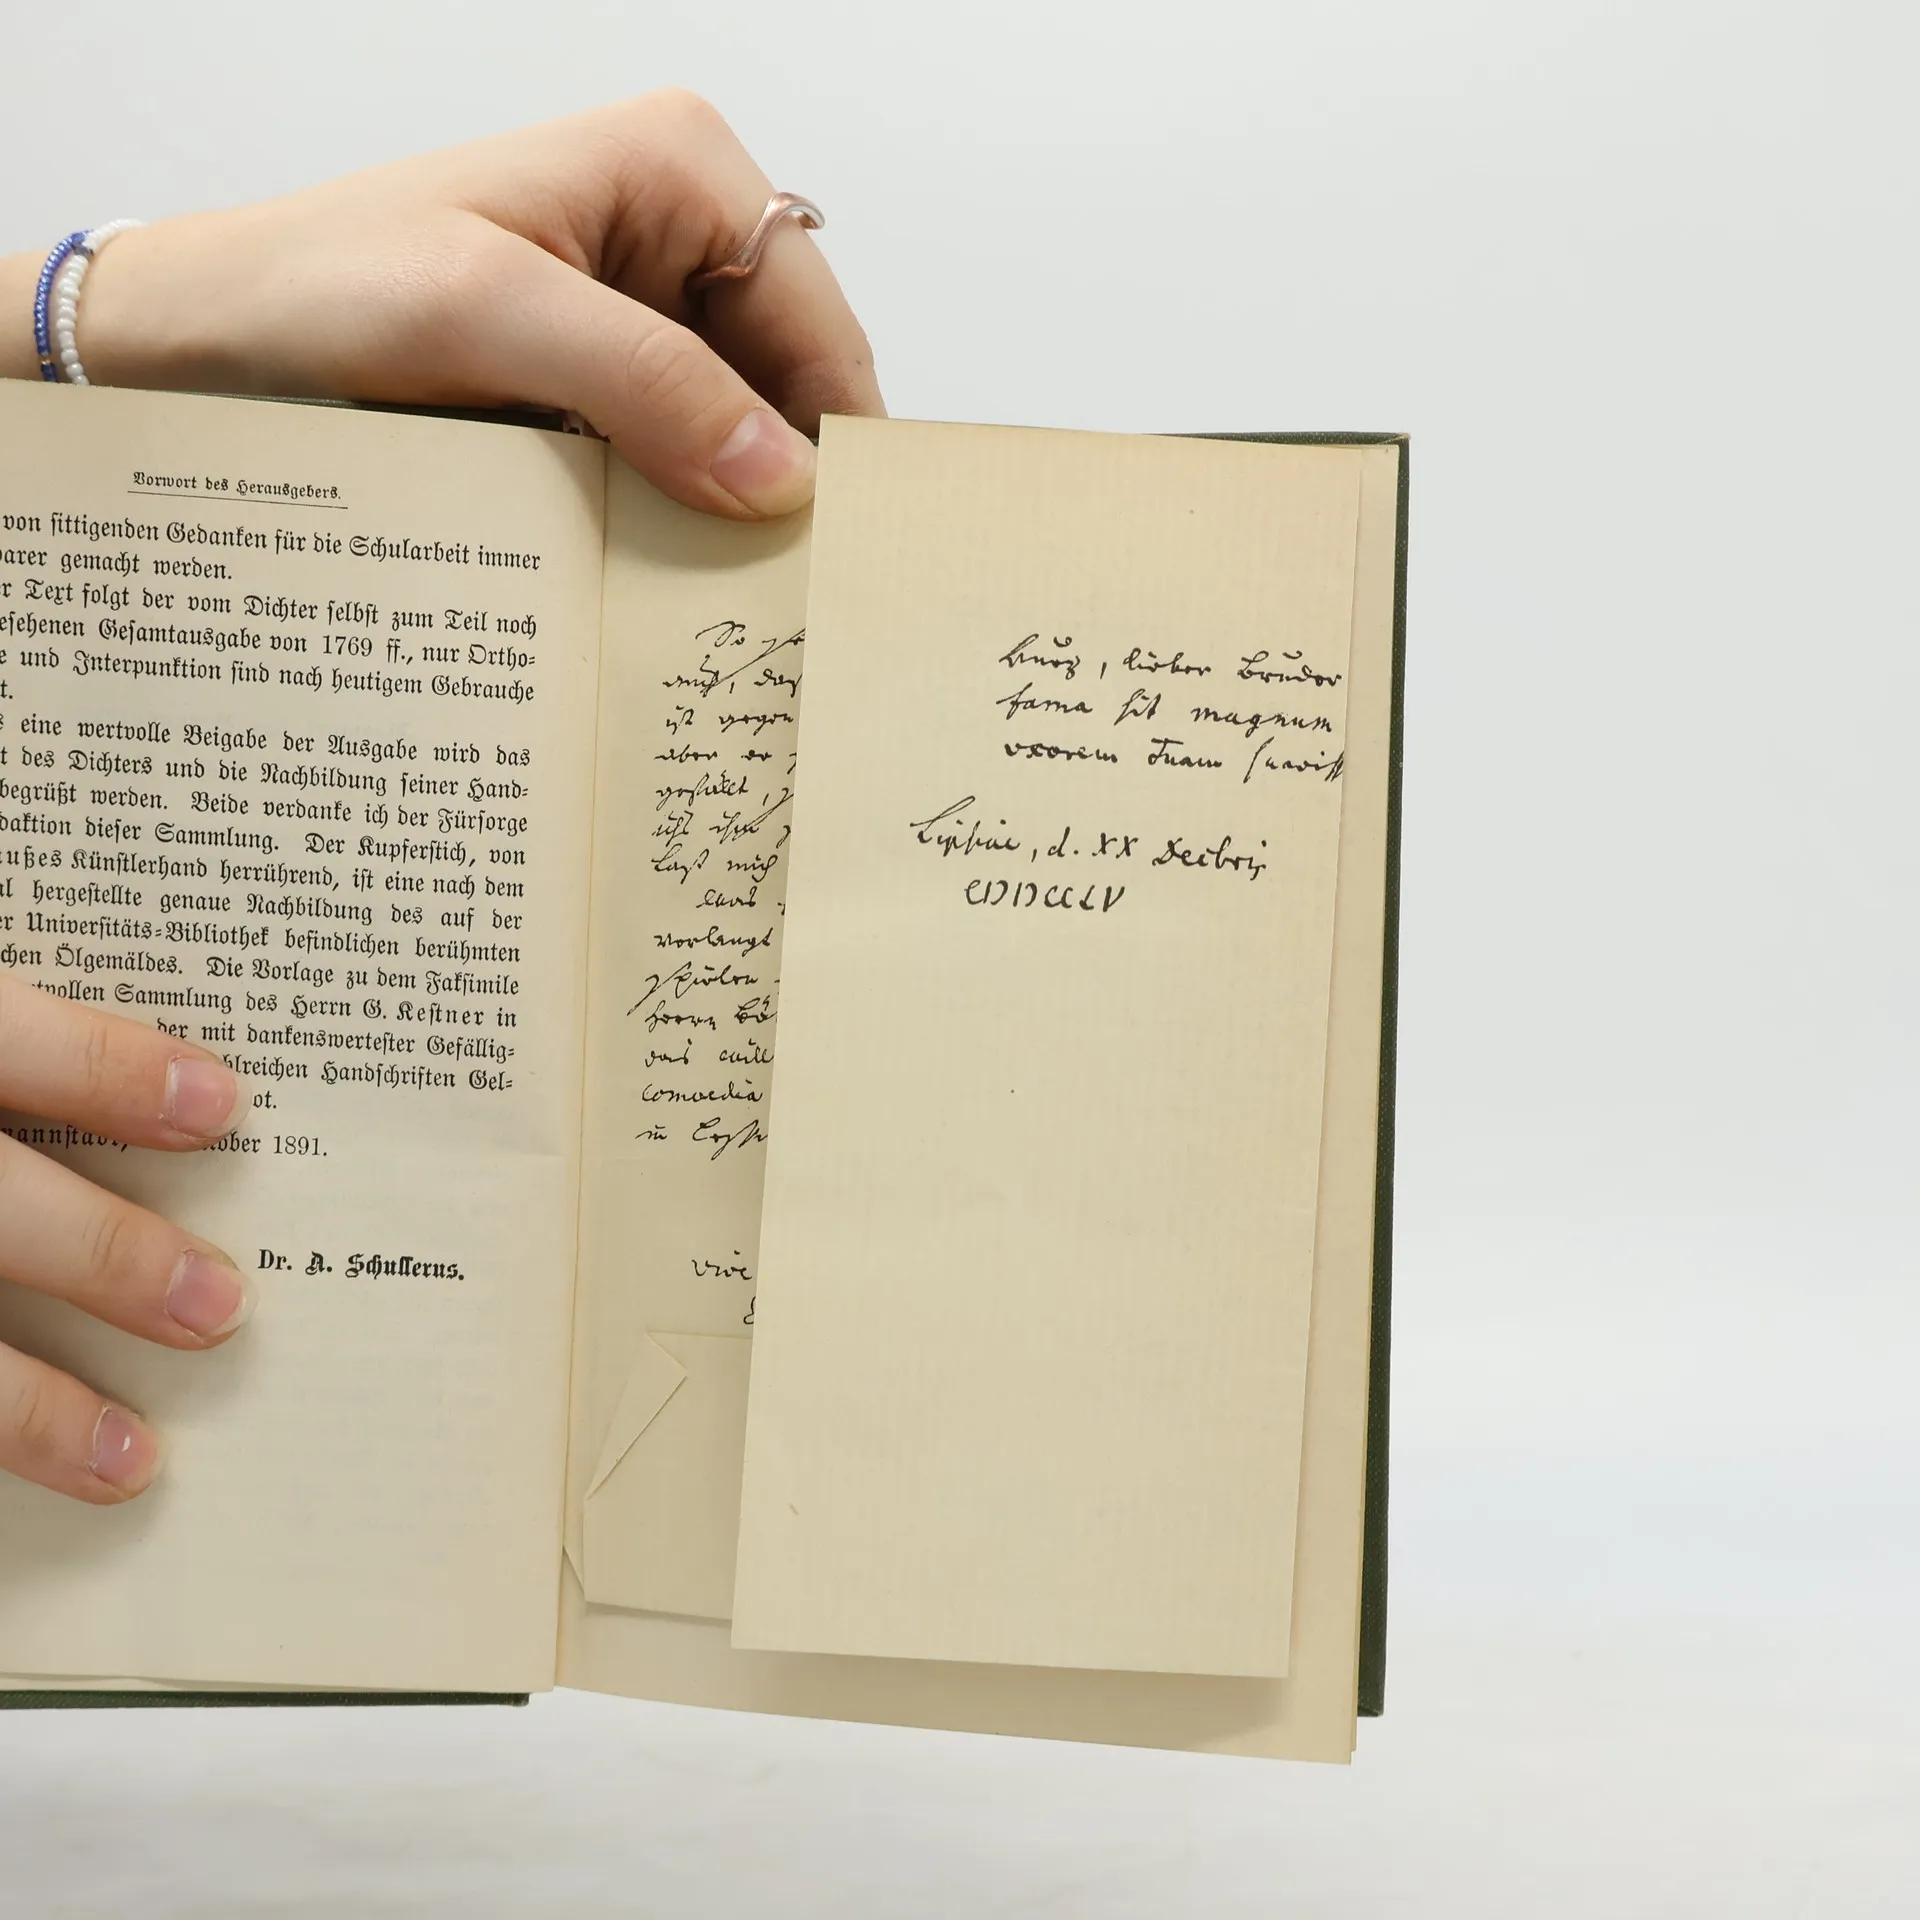 Vorwort des Herausgebers.
von sittigenden Gedanken für die Schularbeit immer
barer gemacht werden.
r Text folgt der vom Dichter selbst zum Teil noch
esehenen Gesamtausgabe von 1769 ff., nur Ortho-
e und Interpunktion sind nach heutigem Gebrauche
t.
s eine wertvolle Beigabe der Ausgabe wird das
t des Dichters und die Nachbildung seiner Hand-
begrüßt werden. Beide verdanke ich der Fürsorge
daktion dieser Sammlung. Der Kupferstich, von
außes Künstlerhand herrührend, ist eine nach dem
al hergestellte genaue Nachbildung des auf der
er Universitäts-Bibliothek befindlichen berühmten
schen Ölgemäldes. Die Vorlage zu dem Faksimile
tvollen Sammlung des Herrn G. Kestner in
der mit dankenswertester Gefällig-
hlreichen Handschriften Gel-
ot.
mannstadt, ober 1891.
Dr. A. Schullerus.
So
auch, daß
ist gegen
aber er
Laß mich
verlangt
Herrn
das will
comoedia
in
vive
Kurz, lieber Bruder
fama sit magnum
uxorem tuam suaviss
Lipsiae, d. XX Decbris
CIƆIƆCCLV